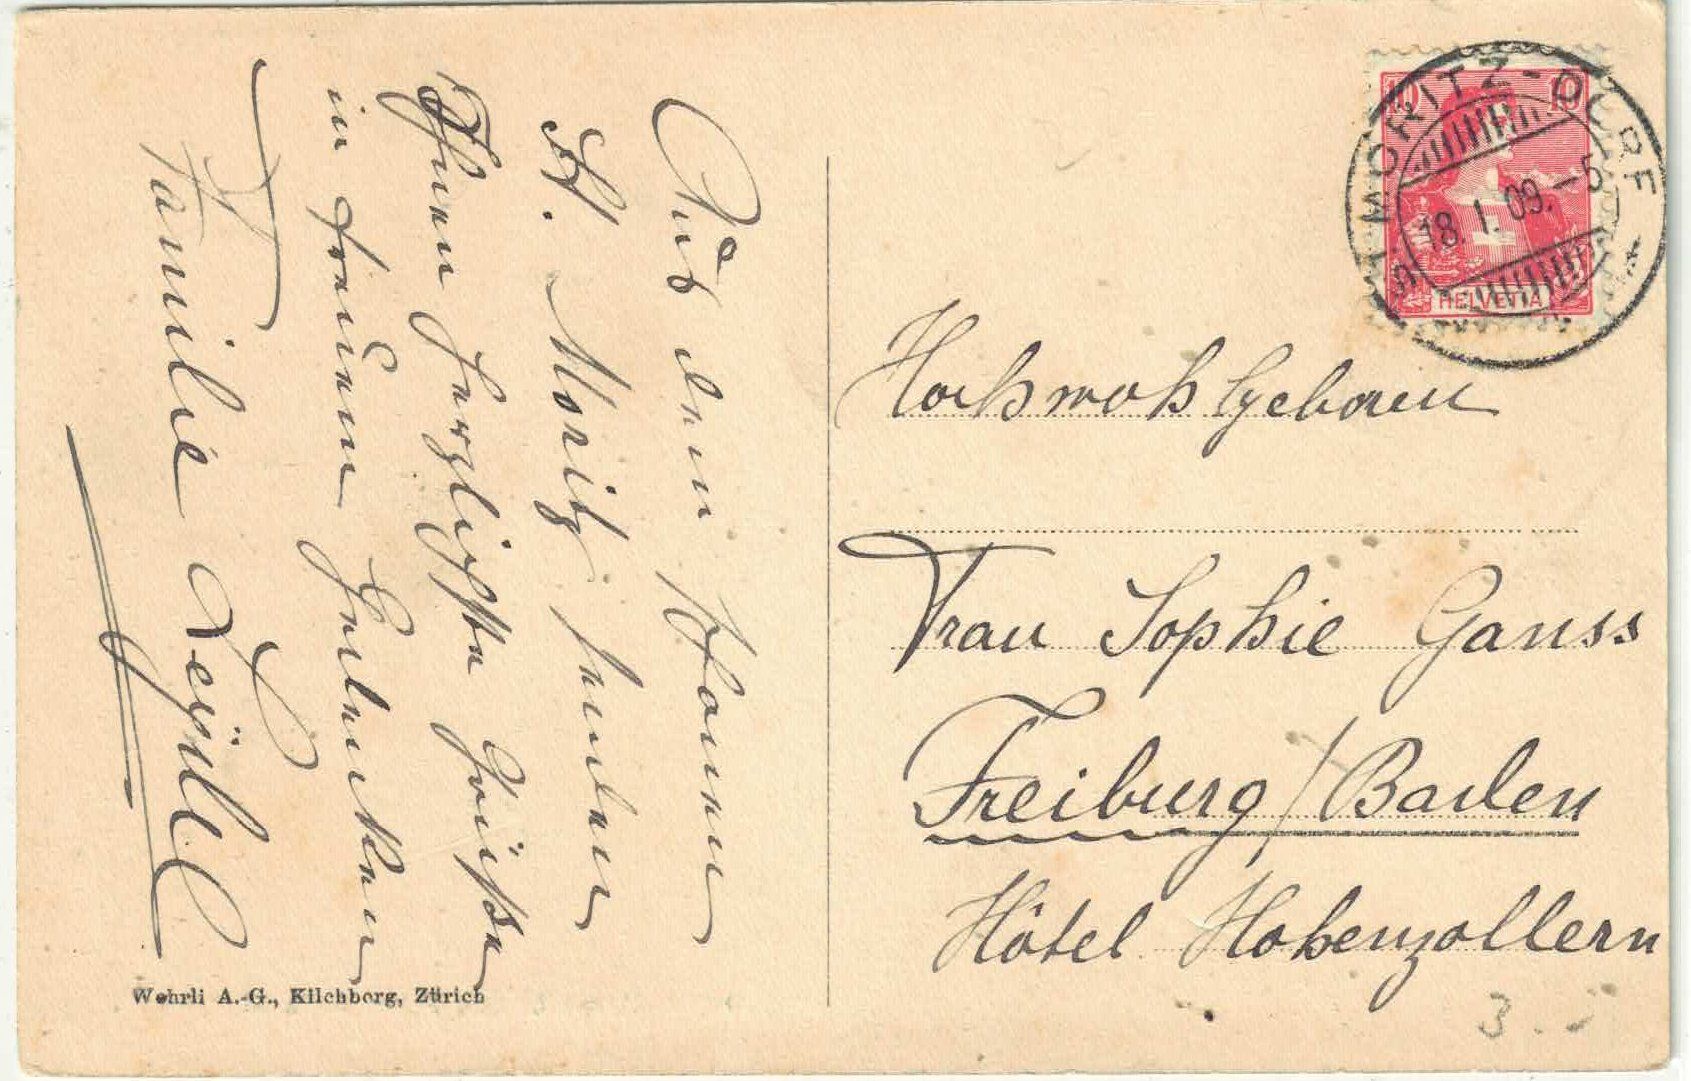 Aus dem schönen
St. Moritz senden
Ihnen herzlichste Grüsse
in treuem Gedenken
Familie
Wehrli A.-G., Kilchberg, Zürich
ST. MORITZ-DORF
18. I. 09. – 5
10 10
HELVETIA
Hochwohlgeboren
Frau Sophie Ganss
Freiburg / Baden
Hôtel Hohenzollern
3.-